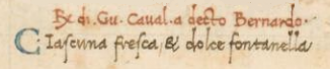 R̃ di. Gu. Caual. a decto Bernardo.
Ciascuna fresca, & dolce fontanella